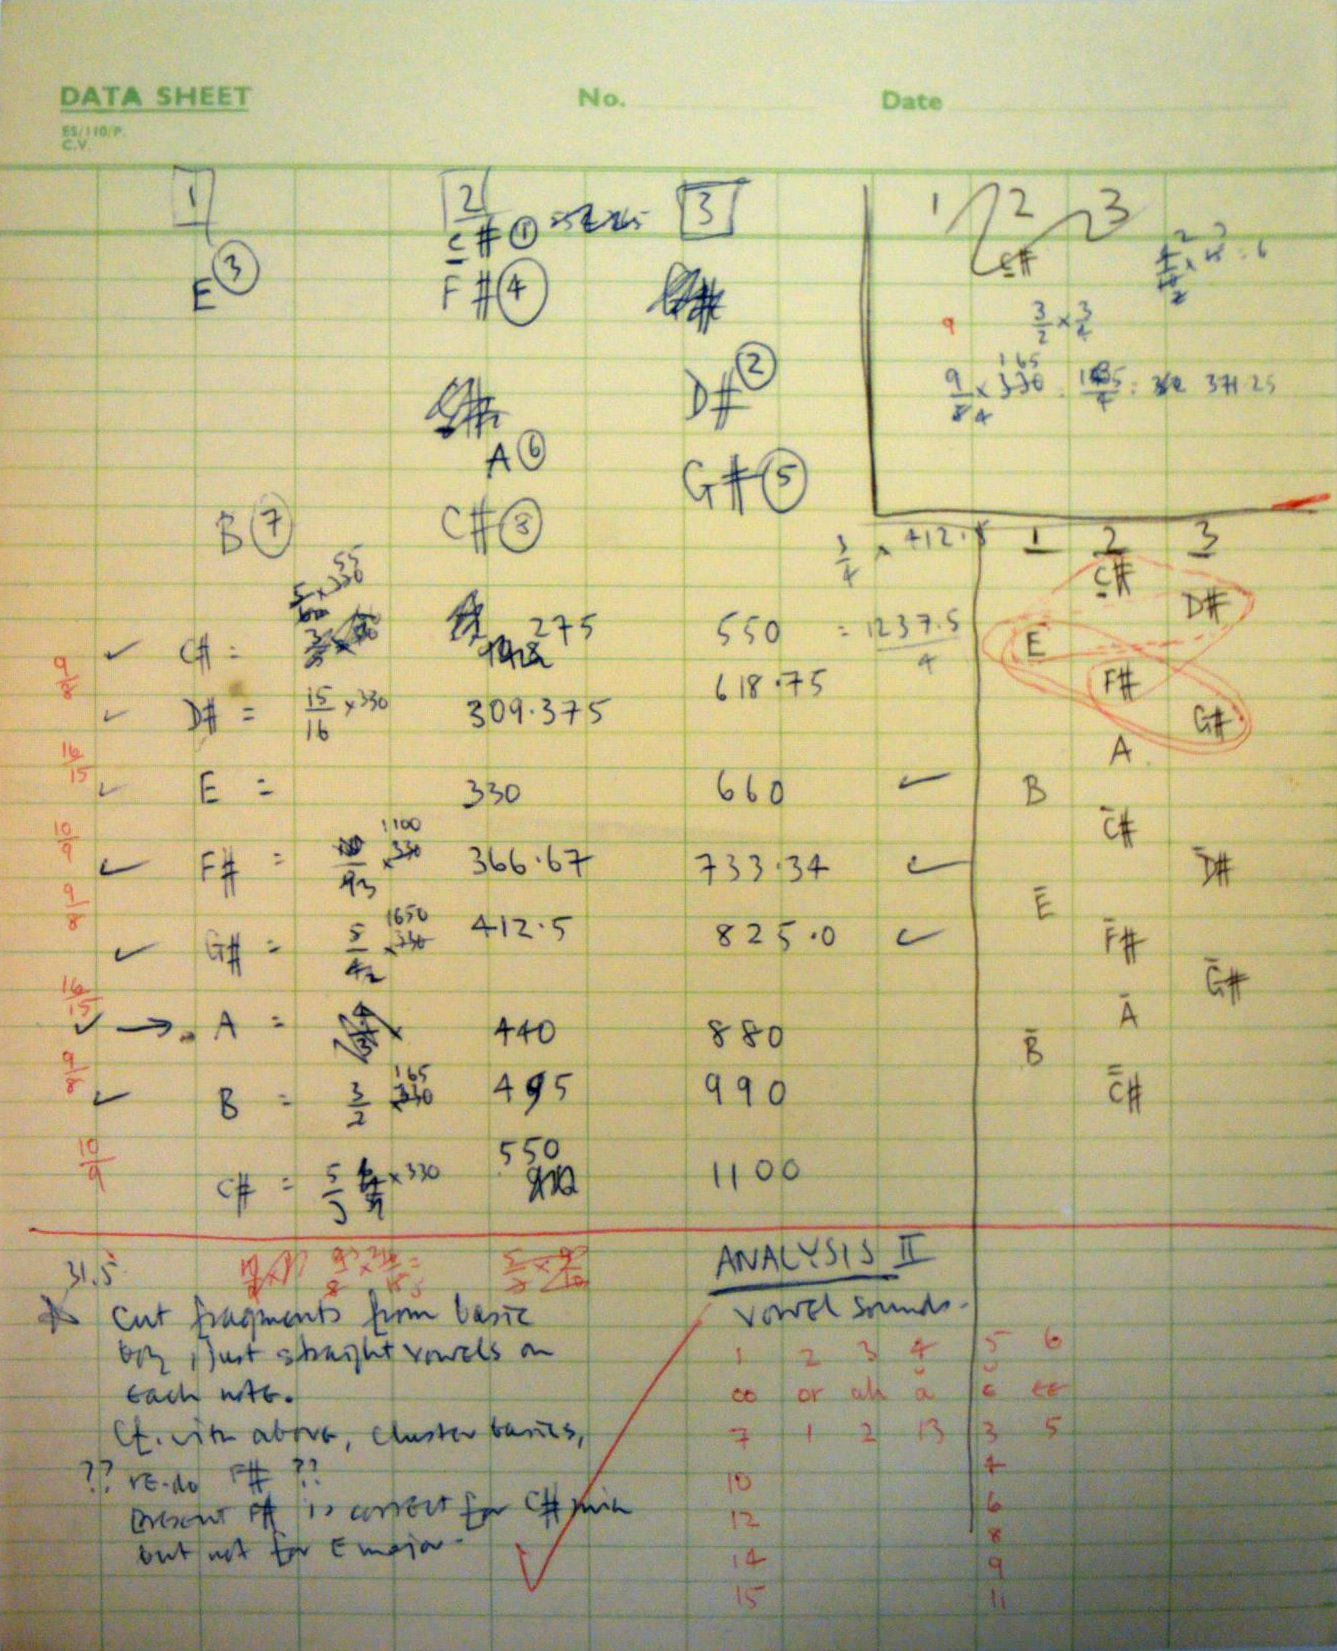 DATA SHEET No. Date
ES/110/P.
C.V.
1 2 3 1 2 3
C# ①
E ③ F# ④ C#
3/2 × 3/4
9
D# ②
9/8 × 330 371.25
A ⑥
G# ⑤
B ⑦ C# ⑧
3/4 × 412.5 1 2 3
C#
D#
C# = 275 550 = 1237.5/4
9/8
E
D# = 15/16 × 330 309.375 618.75
F#
G#
16/15
A
E = 330 660 B
C#
10/9
F# = 1100 366.67 733.34 D#
9/8
E
G# = 5/4 1650 412.5 825.0 F#
G#
16/15
A = 440 880 A
B
9/8
B = 3/2 165 495 990 C#
10/9
C# = 5/3 × 330 550 1100
31.5
ANALYSIS II
vowel sounds.
Cut fragments from basic
boy, just straight vowels on
each note.
Cf. with above, cluster basics,
?? re-do F# ??
Present F# is correct for C# min
but not for E major.
1 2 3 4 5 6
oo or ah a e ee
7 1 2 13 3 5
10 4
12 6
14 8
15 9
11